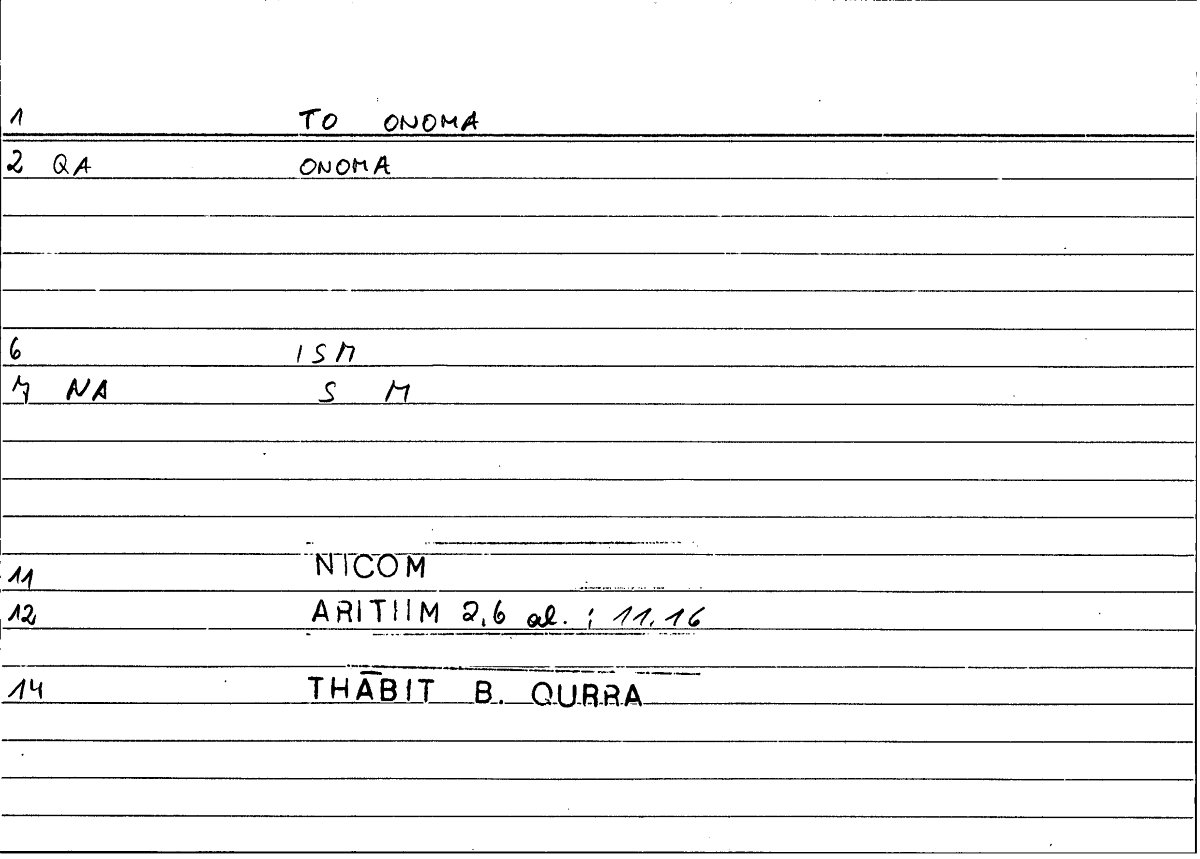 1 TO ONOMA
2 QA ONOMA
6 ISM
7 NA S M
11 NICOM
12 ARITHM 2,6 al. ; 11.16
14 THĀBIT B. QURRA